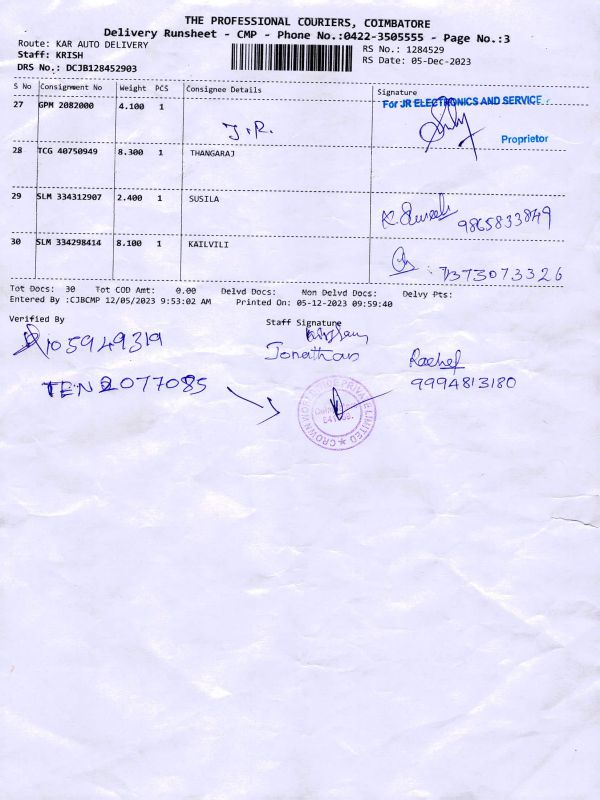 THE PROFESSIONAL COURIERS, COIMBATORE
Delivery Runsheet - CMP - Phone No.:0422-3505555 - Page No.:3
Route: KAR AUTO DELIVERY
RS No.: 1284529
Staff: KRISH
RS Date: 05-Dec-2023
DRS No.: DCJB128452903
S No Consignment No Weight PCS Consignee Details Signature
27 GPM 2082000 4.100 1 J.R. For JR ELECTRONICS AND SERVICE
Proprietor
28 TCG 40750949 8.300 1 THANGARAJ
29 SLM 334312907 2.400 1 SUSILA K. Suresh 9865833849
30 SLM 334298414 8.100 1 KAILVILI 7373073326
Tot Docs: 30 Tot COD Amt: 0.00 Delvd Docs: Non Delvd Docs: Delvy Pts:
Entered By :CJBCMP 12/05/2023 9:53:02 AM Printed On: 05-12-2023 09:59:40
Verified By Staff Signature
Jonathan
Rachel
TEN 2077085
9994813180